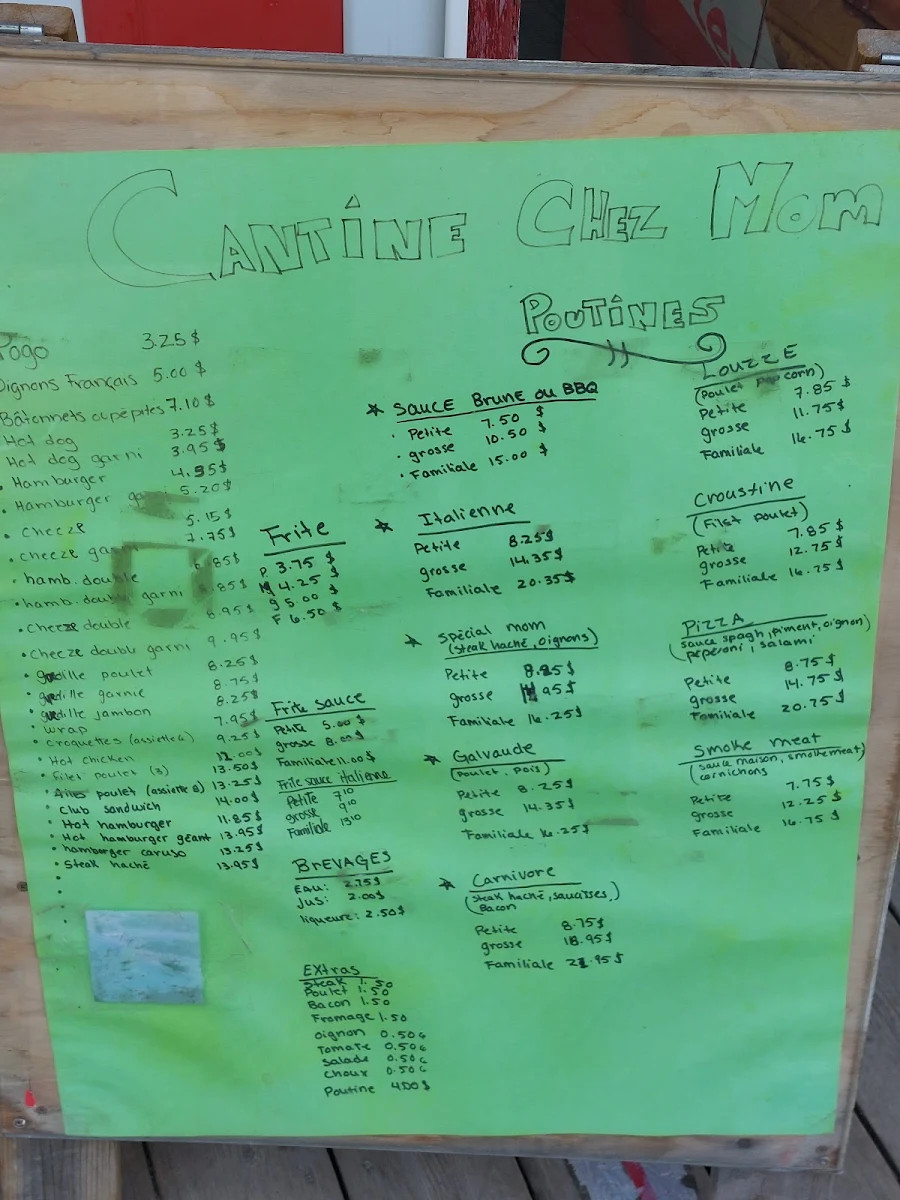 CANTINE CHEZ MOM
Pogo 3.25$
Oignons Français 5.00$
Bâtonnets ou pépites 7.10$
Hot dog 3.25$
Hot dog garni 3.95$
• Hamburger 4.95$
• Hamburger 5.20$
• Cheeze 5.15$
• cheeze 7.75$
• hamb. double 6.85$
• hamb. double garni .85$
• Cheeze double 8.95$
• Cheeze double garni 9.95$
• guedille poulet 8.25$
• guedille garnie 8.75$
• guedille jambon 8.25$
• wrap 7.95$
• croquettes (assiette) 9.25$
• Hot chicken 12.00$
• Filet poulet (3) 13.50$
• Ailes poulet (assiette 8) 13.25$
• Club sandwich 14.00$
• Hot hamburger 11.85$
• Hot hamburger géant 13.95$
• hamburger caruso 13.25$
• Steak haché 13.95$
Frite
P 3.75 $
M 4.25 $
g 5.00 $
F 6.50 $
Frite sauce
Petite 5.00 $
grosse 8.00$
Familiale 11.00$
Frite sauce italienne
Petite 7¹⁰
grosse 9¹⁰
Familiale 13¹⁰
BREVAGES
Eau: 2.75$
Jus: 2.00$
liqueure: 2.50$
Extras
Steak 1.50
Poulet 1.50
Bacon 1.50
Fromage 1.50
oignon 0.50¢
Tomate 0.50¢
Salade 0.50¢
Choux 0.50¢
Poutine 4.00$
POUTINES
Sauce Brune ou BBQ
• Petite 7.50 $
• grosse 10.50 $
• Familiale 15.00 $
Italienne
Petite 8.25$
grosse 14.35$
Familiale 20.35$
Spécial mom
(steak haché, oignons)
Petite 8.25$
grosse 95$
Familiale 16.25$
Galvaude
(poulet, pois)
Petite 8.25$
grosse 14.35$
Familiale 16.25$
Carnivore
(steak haché, saucisses,)
Bacon
Petite 8.75$
grosse 18.95$
Familiale 21.95$
LOUZZE
(Poulet popcorn)
Petite 7.85$
grosse 11.75$
Familiale 16.75$
Croustine
(Filet poulet)
Petite 7.85$
grosse 12.75$
Familiale 16.75$
PIZZA
(sauce spagh, piment, oignon)
pepéroni, salami
Petite 8.75$
grosse 14.75$
Familiale 20.75$
Smoke meat
(sauce maison, smokemeat)
cornichons
Petite 7.75$
grosse 12.25$
Familiale 16.75$